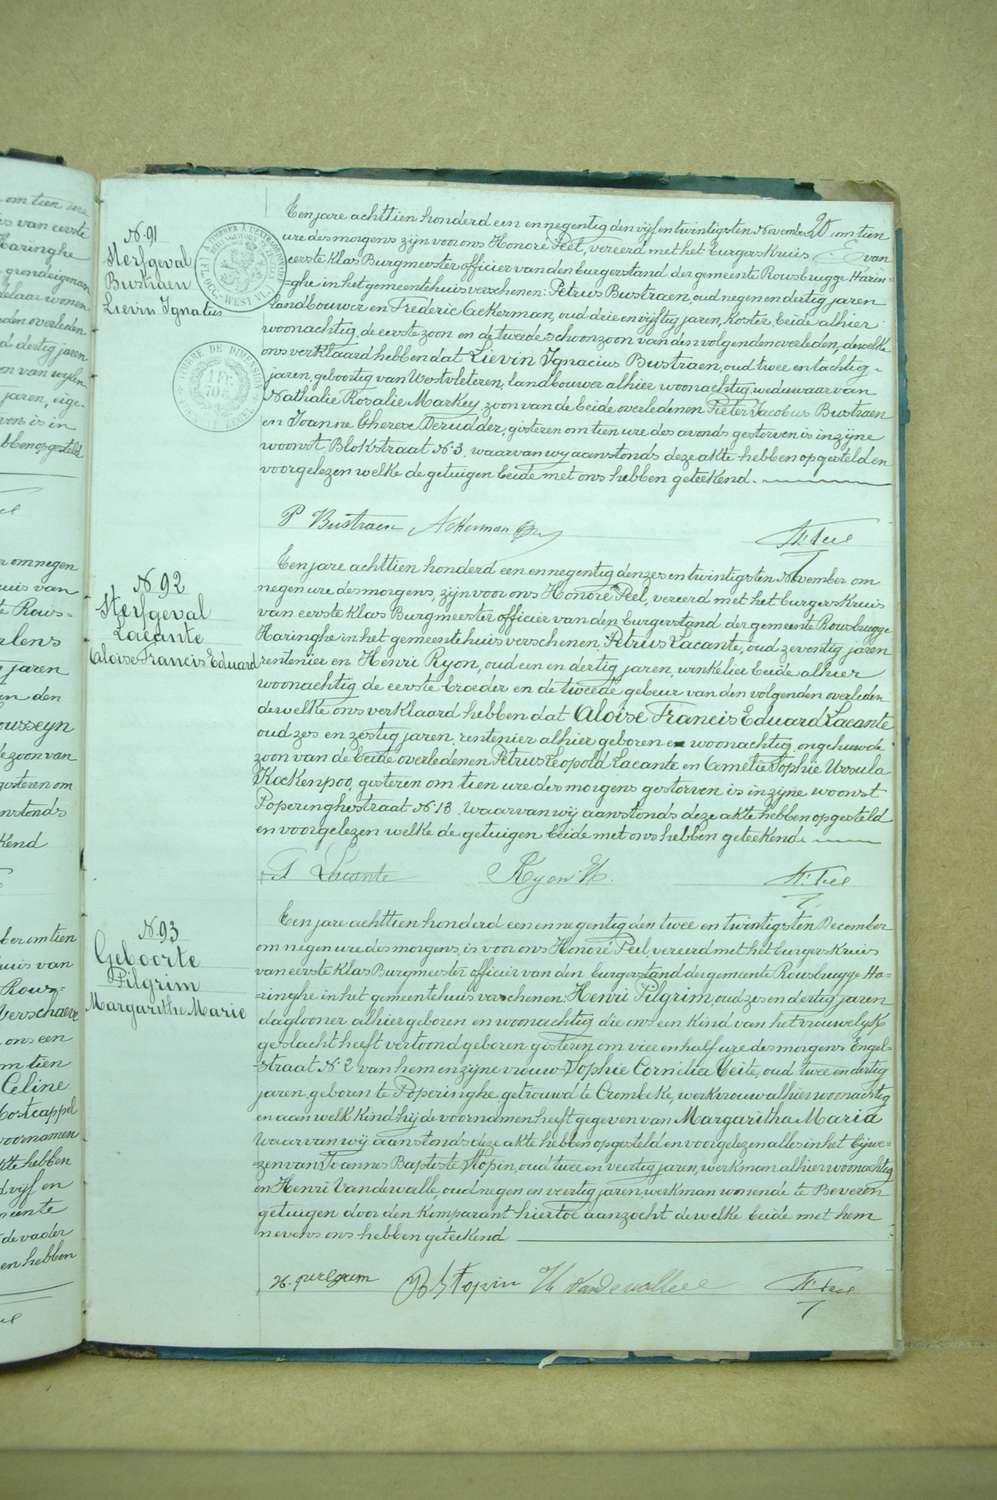 N. 91
Sterfgeval
Bustraen
Lievin Ignatius
Een jare achttien honderd een en negentig den vijf en twintigsten November, om tien
ure des morgens zijn voor ons Honoré Peel, vereerd met het burgerskruis van
eerste klas Burgmeester officier van den burgerstand der gemeente Rousbrugge Harin-
-ghe in het gemeentehuis verschenen: Petrus Bustraen, oud negen en dertig jaren
landbouwer en Frederic Ackerman, oud drie en vijftig jaren, koster beide alhier
woonachtig de eerste zoon en de tweede schoonzoon van den volgenden overleden, dewelke
ons verklaard hebben dat Lievin Ignacius Bustraen, oud twee en tachtig
jaren, geboortig van Westvleteren, landbouwer alhier woonachtig, weduwaar van
Nathalie Rosalie Markey, zoon van de beide overledenen Pieter Jacobus Bustraen
en Joanne Therese Derudder, gisteren om tien ure des avonds gestorven is in zijne
woonst Blokstraat N. 3. waarvan wy aanstonds deze akte hebben opgesteld en
voorgelezen welke de getuigen beide met ons hebben geteekend.
P Bustraen Ackerman H. Peel
N. 92
Sterfgeval
Lacante
Aloïse Francis Eduard
Een jare achttien honderd een en negentig den zes en twintigsten November om
negen ure des morgens, zijn voor ons Honoré Peel, vereerd met het burgerskruis
van eerste klas Burgmeester officier van den burgerstand der gemeente Rousbrugge
Haringhe in het gemeentehuis verschenen, Petrus Lacante, oud zeventig jaren
rentenier en Henri Ryon, oud een en dertig jaren, winkelier beide alhier
woonachtig de eerste broeder en de tweede gebeur van den volgenden overleden
dewelke ons verklaard hebben dat Aloïse Francis Eduard Lacante
oud zes en zestig jaren, rentenier alhier geboren en woonachtig, ongehuwde
zoon van de beide overledenen Petrus Leopold Lacante en Amelie Sophie Ursula
Kockenpoo, gisteren om tien ure des morgens gestorven is in zijne woonst
Poperinghestraat N. 13. waarvan wij aanstonds deze akte hebben opgesteld
en voorgelezen welke de getuigen beide met ons hebben geteekend.
P Lacante Ryon H. H. Peel
N. 93
Geboorte
Pilgrim
Margarithe Marie
Een jare achttien honderd een en negentig den twee en twintigsten December
om negen ure des morgens, is voor ons Honoré Peel, vereerd met het burgerskruis
van eerste klas Burgmeester officier van den burgerstand der gemeente Rousbrugge Ha-
-ringhe in het gemeentehuis verschenen, Henri Pilgrim, oud zes en dertig jaren
daglooner alhier geboren en woonachtig die ons een kind van het vrouwelijk
geslacht heeft vertoond geboren gisteren om vier en half ure des morgens Engel-
-straat N. 2 van hem en zijne vrouw Sophie Cornelia Beite, oud twee en dertig
jaren, geboren te Poperinghe getrouwd te Crombeke, werkvrouw alhier woonachtig
en aan welk kind hij de voornamen heeft gegeven van Margaritha Maria
Waarvan wij aanstonds deze akte hebben opgesteld en voorgelezen alles in het bijwe-
-zen van Joannes Baptiste Stopin, oud twee en veertig jaren, werkman alhier woonachtig
en Henri Vandewalle, oud negen en veertig jaren, werkman wonende te Beveren
getuigen door den komparant hiertoe aanzocht dewelke beide met hem
nevens ons hebben geteekend
H. pilegrim B Stopin H Vandewallee H. Peel